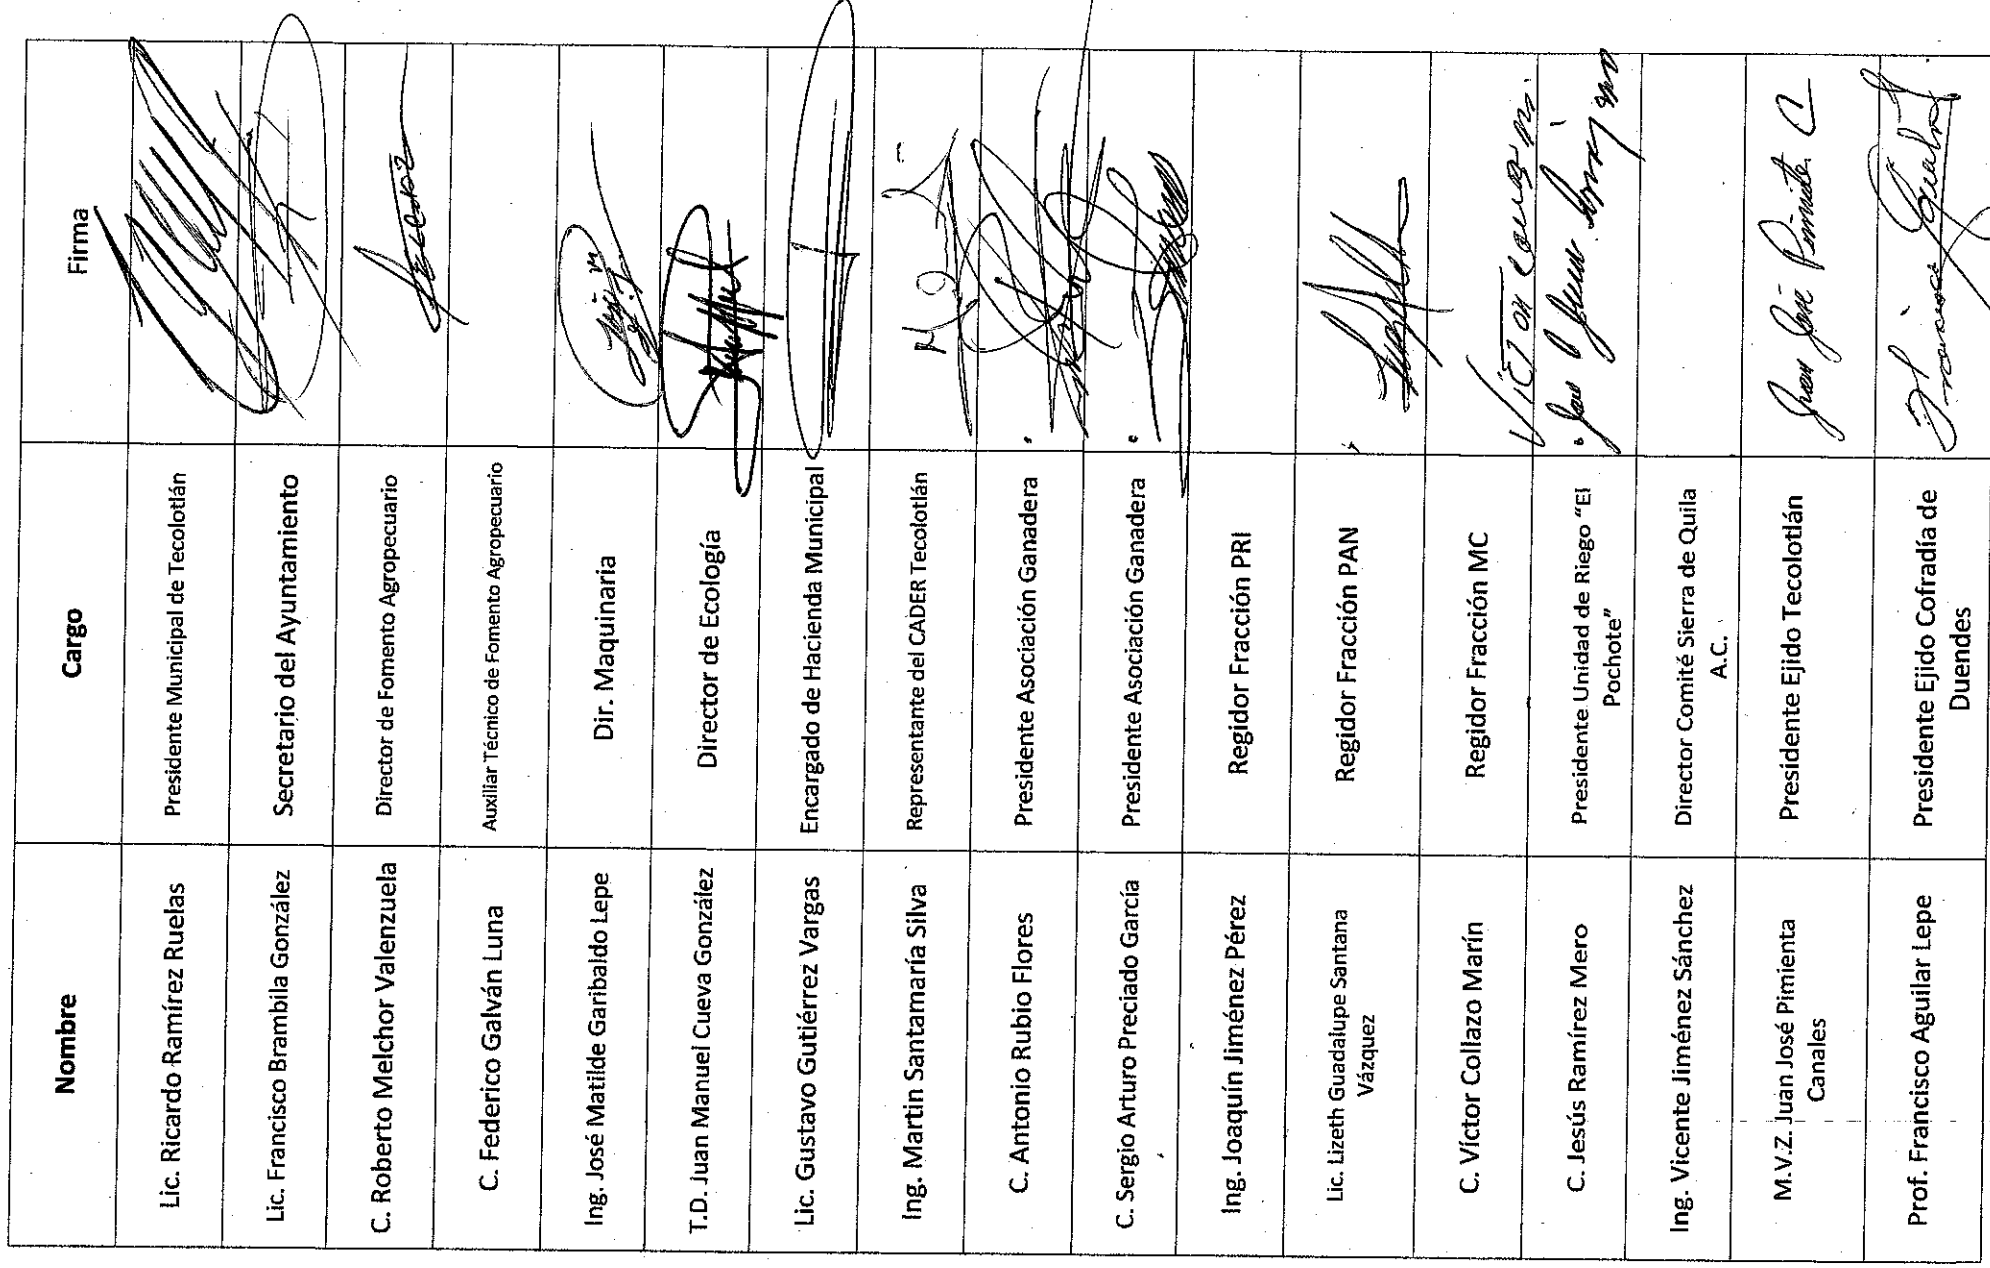 Nombre Cargo Firma
Lic. Ricardo Ramírez Ruelas Presidente Municipal de Tecolotlán
Lic. Francisco Brambila González Secretario del Ayuntamiento
C. Roberto Melchor Valenzuela Director de Fomento Agropecuario
C. Federico Galván Luna Auxiliar Técnico de Fomento Agropecuario
Ing. José Matilde Garibaldo Lepe Dir. Maquinaria
T.D. Juan Manuel Cueva González Director de Ecología
Lic. Gustavo Gutiérrez Vargas Encargado de Hacienda Municipal
Ing. Martin Santamaría Silva Representante del CADER Tecolotlán
C. Antonio Rubio Flores Presidente Asociación Ganadera
C. Sergio Arturo Preciado García Presidente Asociación Ganadera
Ing. Joaquín Jiménez Pérez Regidor Fracción PRI
Lic. Lizeth Guadalupe Santana
Vázquez
Regidor Fracción PAN
C. Víctor Collazo Marín Regidor Fracción MC
C. Jesús Ramírez Mero
Presidente Unidad de Riego "El
Pochote"
Ing. Vicente Jiménez Sánchez
Director Comité Sierra de Quila
A.C.
M.V.Z. Juan José Pimienta
Canales
Presidente Ejido Tecolotlán
Juan José Pimienta C
Prof. Francisco Aguilar Lepe
Presidente Ejido Cofradía de
Duendes